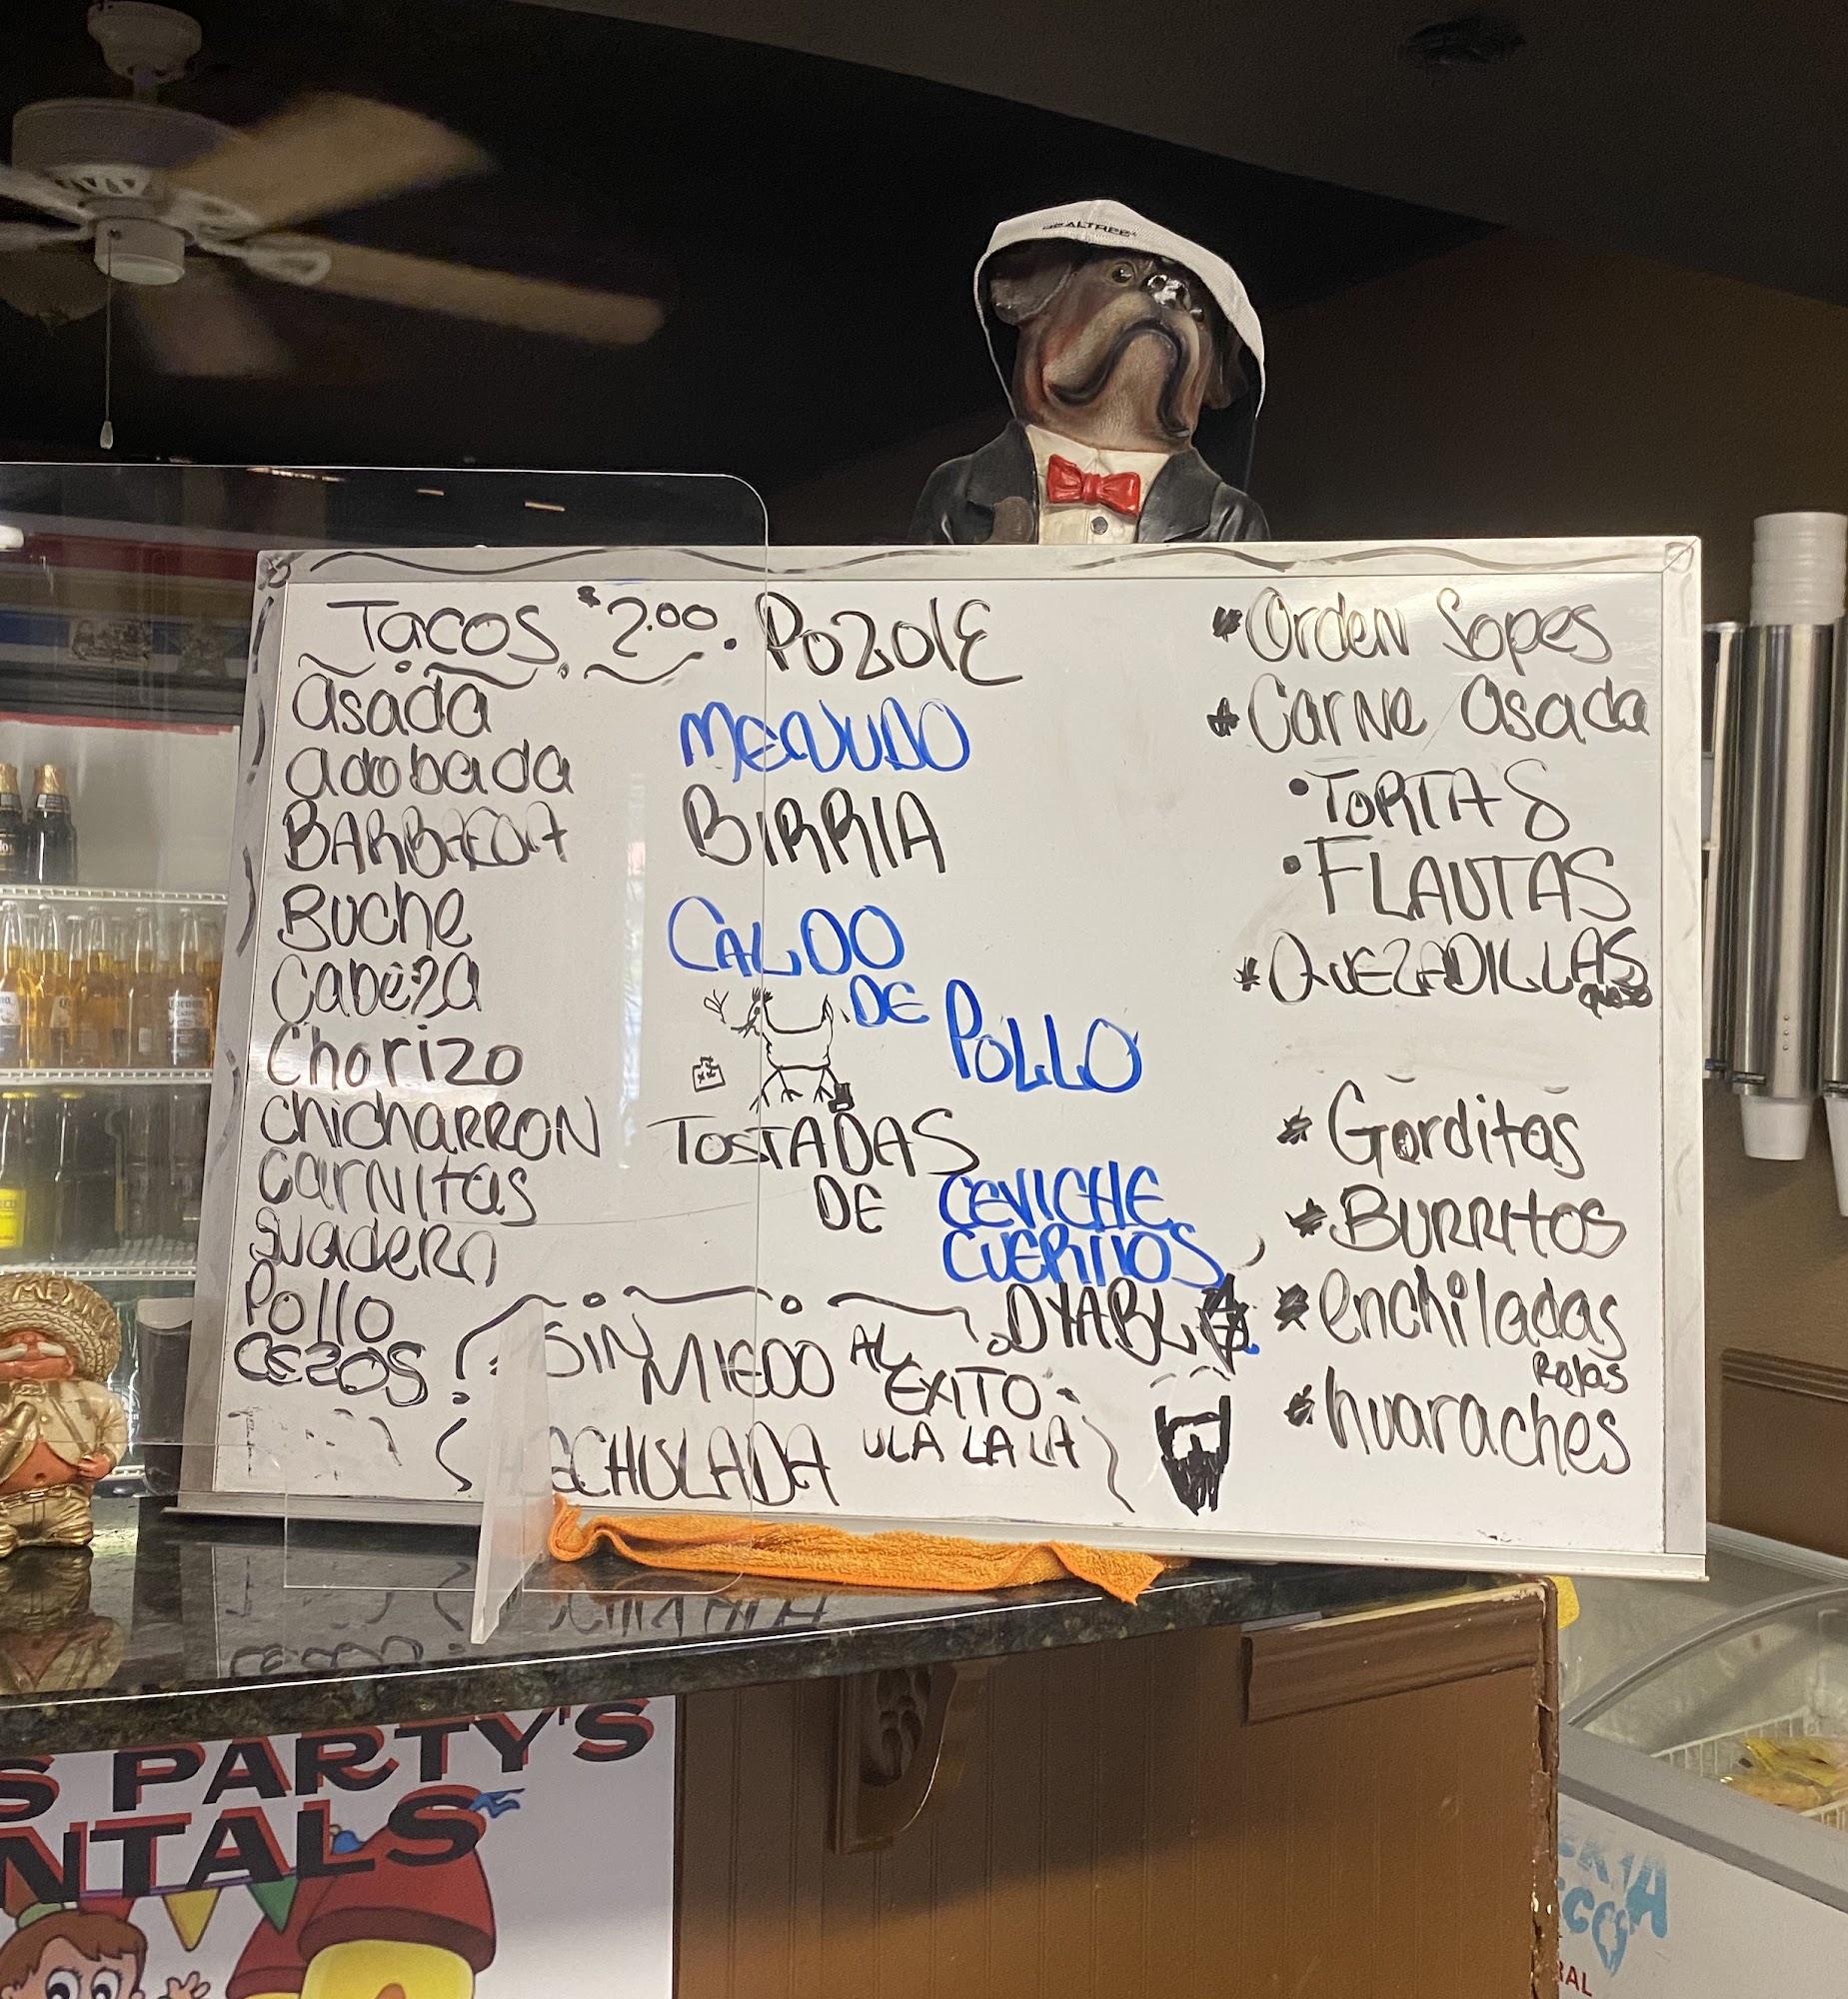 REALTREE
Tacos $2.00
asada
adobada
BARBACOA
Buche
Cabeza
Chorizo
chicharRON
CarNitas
Suadero
Pollo
CEZOS
PoZolE
MENUDO
BIRRIA
CALDO
DE POLLO
TOSTADAS
DE CEVICHE
CUERITOS
DYABLA
SIN MIEDO AL EXITO
CHULADA ULA LA LA
*Orden Sopes
*Carne asada
•TORTAS
•FLAUTAS
*QUEZADILLAS
queso
*Gorditas
*BURRITOS
*enchiladas
Rojas
*huaraches
S PARTY'S
NTALS